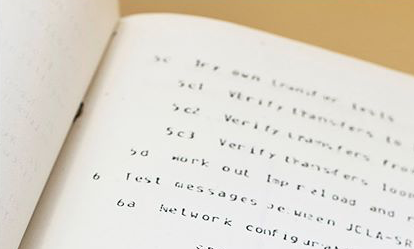 5c Try own transfer tests
5c1 Verify transfers to
5c2 Verify transfers
5c3 Verify transfers from
5d Work out Imp reload and
6 Test messages between UCLA-SR
6a Network configurat